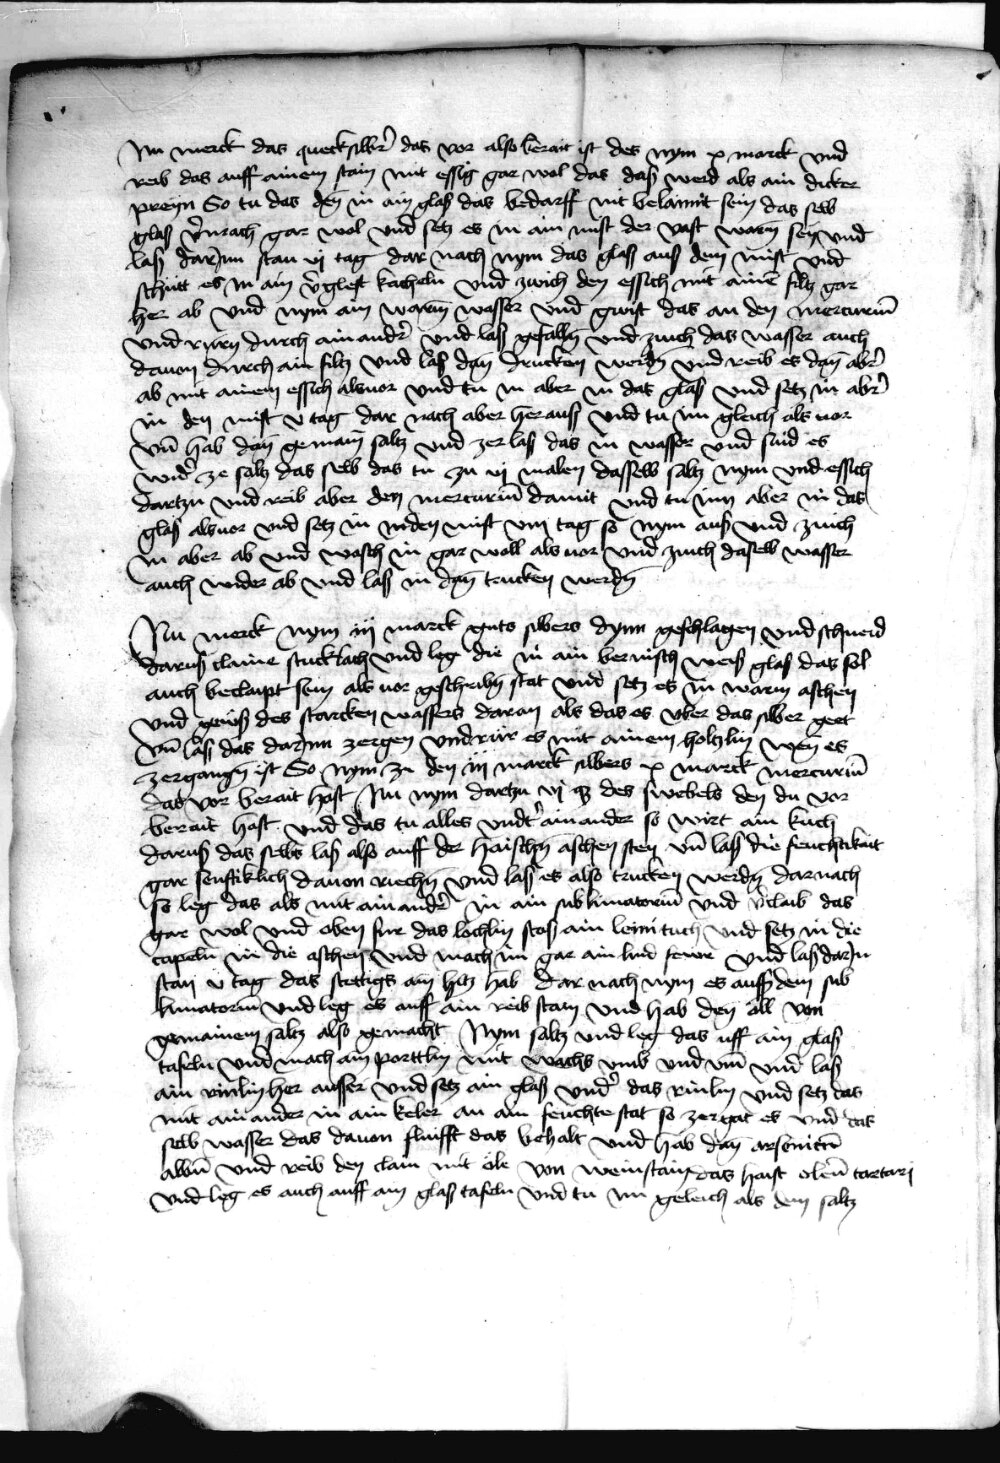 Nu merck das quecksilber das vor also berait ist des nym x marck vnd
reib das auff ainem stain mit essig gar wol das daß werd als ain dicker
preyn So tu das den in ain glaß das bedarff nit belaimt sein das selb
glaß vermach gar wol vnd setz es in ain mist der vast warm sey vnd
laß darinn stan vj tag dar nach nym das glaß aus dem mist vnd
schütt es in ain verglest kacheln vnd zwich den essich mit ainē filtz gar
her ab vnd nym ain warm wasser vnd gwist das an den mercuriū
vnd rürn durch ain ander vnd laß gefalln vnd zuich das wasser auch
dauon durch ain filtz vnd laß dan drucken werdn vnd reib es dan aber
ab mit ainem essich als uor vnd tu in aber in das glaß vnd setz in aber
in den mist v tag dar nach aber herauß vnd tu im gleich als uor
vnd hab dan gemain saltz vnd zerlaß das in wasser vnd süd es
wider ze saltz das selb das tu zu vj malen dasselb saltz nym vnd essich
dartzu vnd reib aber den mercuriū damit vnd tu inn aber in das
glaß als uor vnd setz in in den mist viij tag so nym auß vnd zuich
in aber ab vnd wasch in gar woll als uor vnd zuich daselb wasser
auch wider ab vnd laß in dan trucken werdn
Nu merck nym iij marck guts silbers dynn geschlagen vnd schneid
daruß claine stucklach vnd leg die in ain bernisch weiß glaß das sol
auch beclaipt sein als uor geschribn stat vnd setz es in warm aschen
vnd geuß des starcken wassers daran als das es vber das silber geet
vnd laß das darinn zergen vnd rür es mit ainem holtzlin wen es
zergangn ist So nym zu den iij marck silbers x marck mercuriū
das vor berait hast Nu nym dartzu vj des swebels den du vor
berait hast vnd das tu alles vnder ainander so wirt ain kuch
daruß das selbs laß also auff der haischn aschen sten vnd laß die feuchtikait
gar senftiklich dauon riechn vnd laß es also trucken werdn darnach
so leg das als mit ainander in ain sublimatoriū vnd verclaib das
gar wol vnd oben fur das lochlin stoß ain leinin tuch vnd setz in die
capeln in die aschen vnd mach im gar ain lind feur vnd laß darin
stan v tag das stettigs ain hitz hab dar nach nym es auß dem sub
limatoriū vnd leg es auff ain reib stain vnd hab den öll von
gemainem saltz also gemacht Nym saltz vnd leg das uff ain glaß
tafeln vnd mach ain porttlin mit wachs vmb vnd vm vnd laß
ain rinlin her ausser vnd setz ain glaß vnder das rinlin vnd setz das
mit ainander in ain keler an ain feuchte stat so zergat es vnd das
selb wasser das dauon flüsst das behalt vnd hab dan arsenicū
albū vnd reib den clain mit öle von weinstain das haist oleū tartari
vnd leg es auch auff ain glaß tafeln vnd tu im geleich als dem saltz